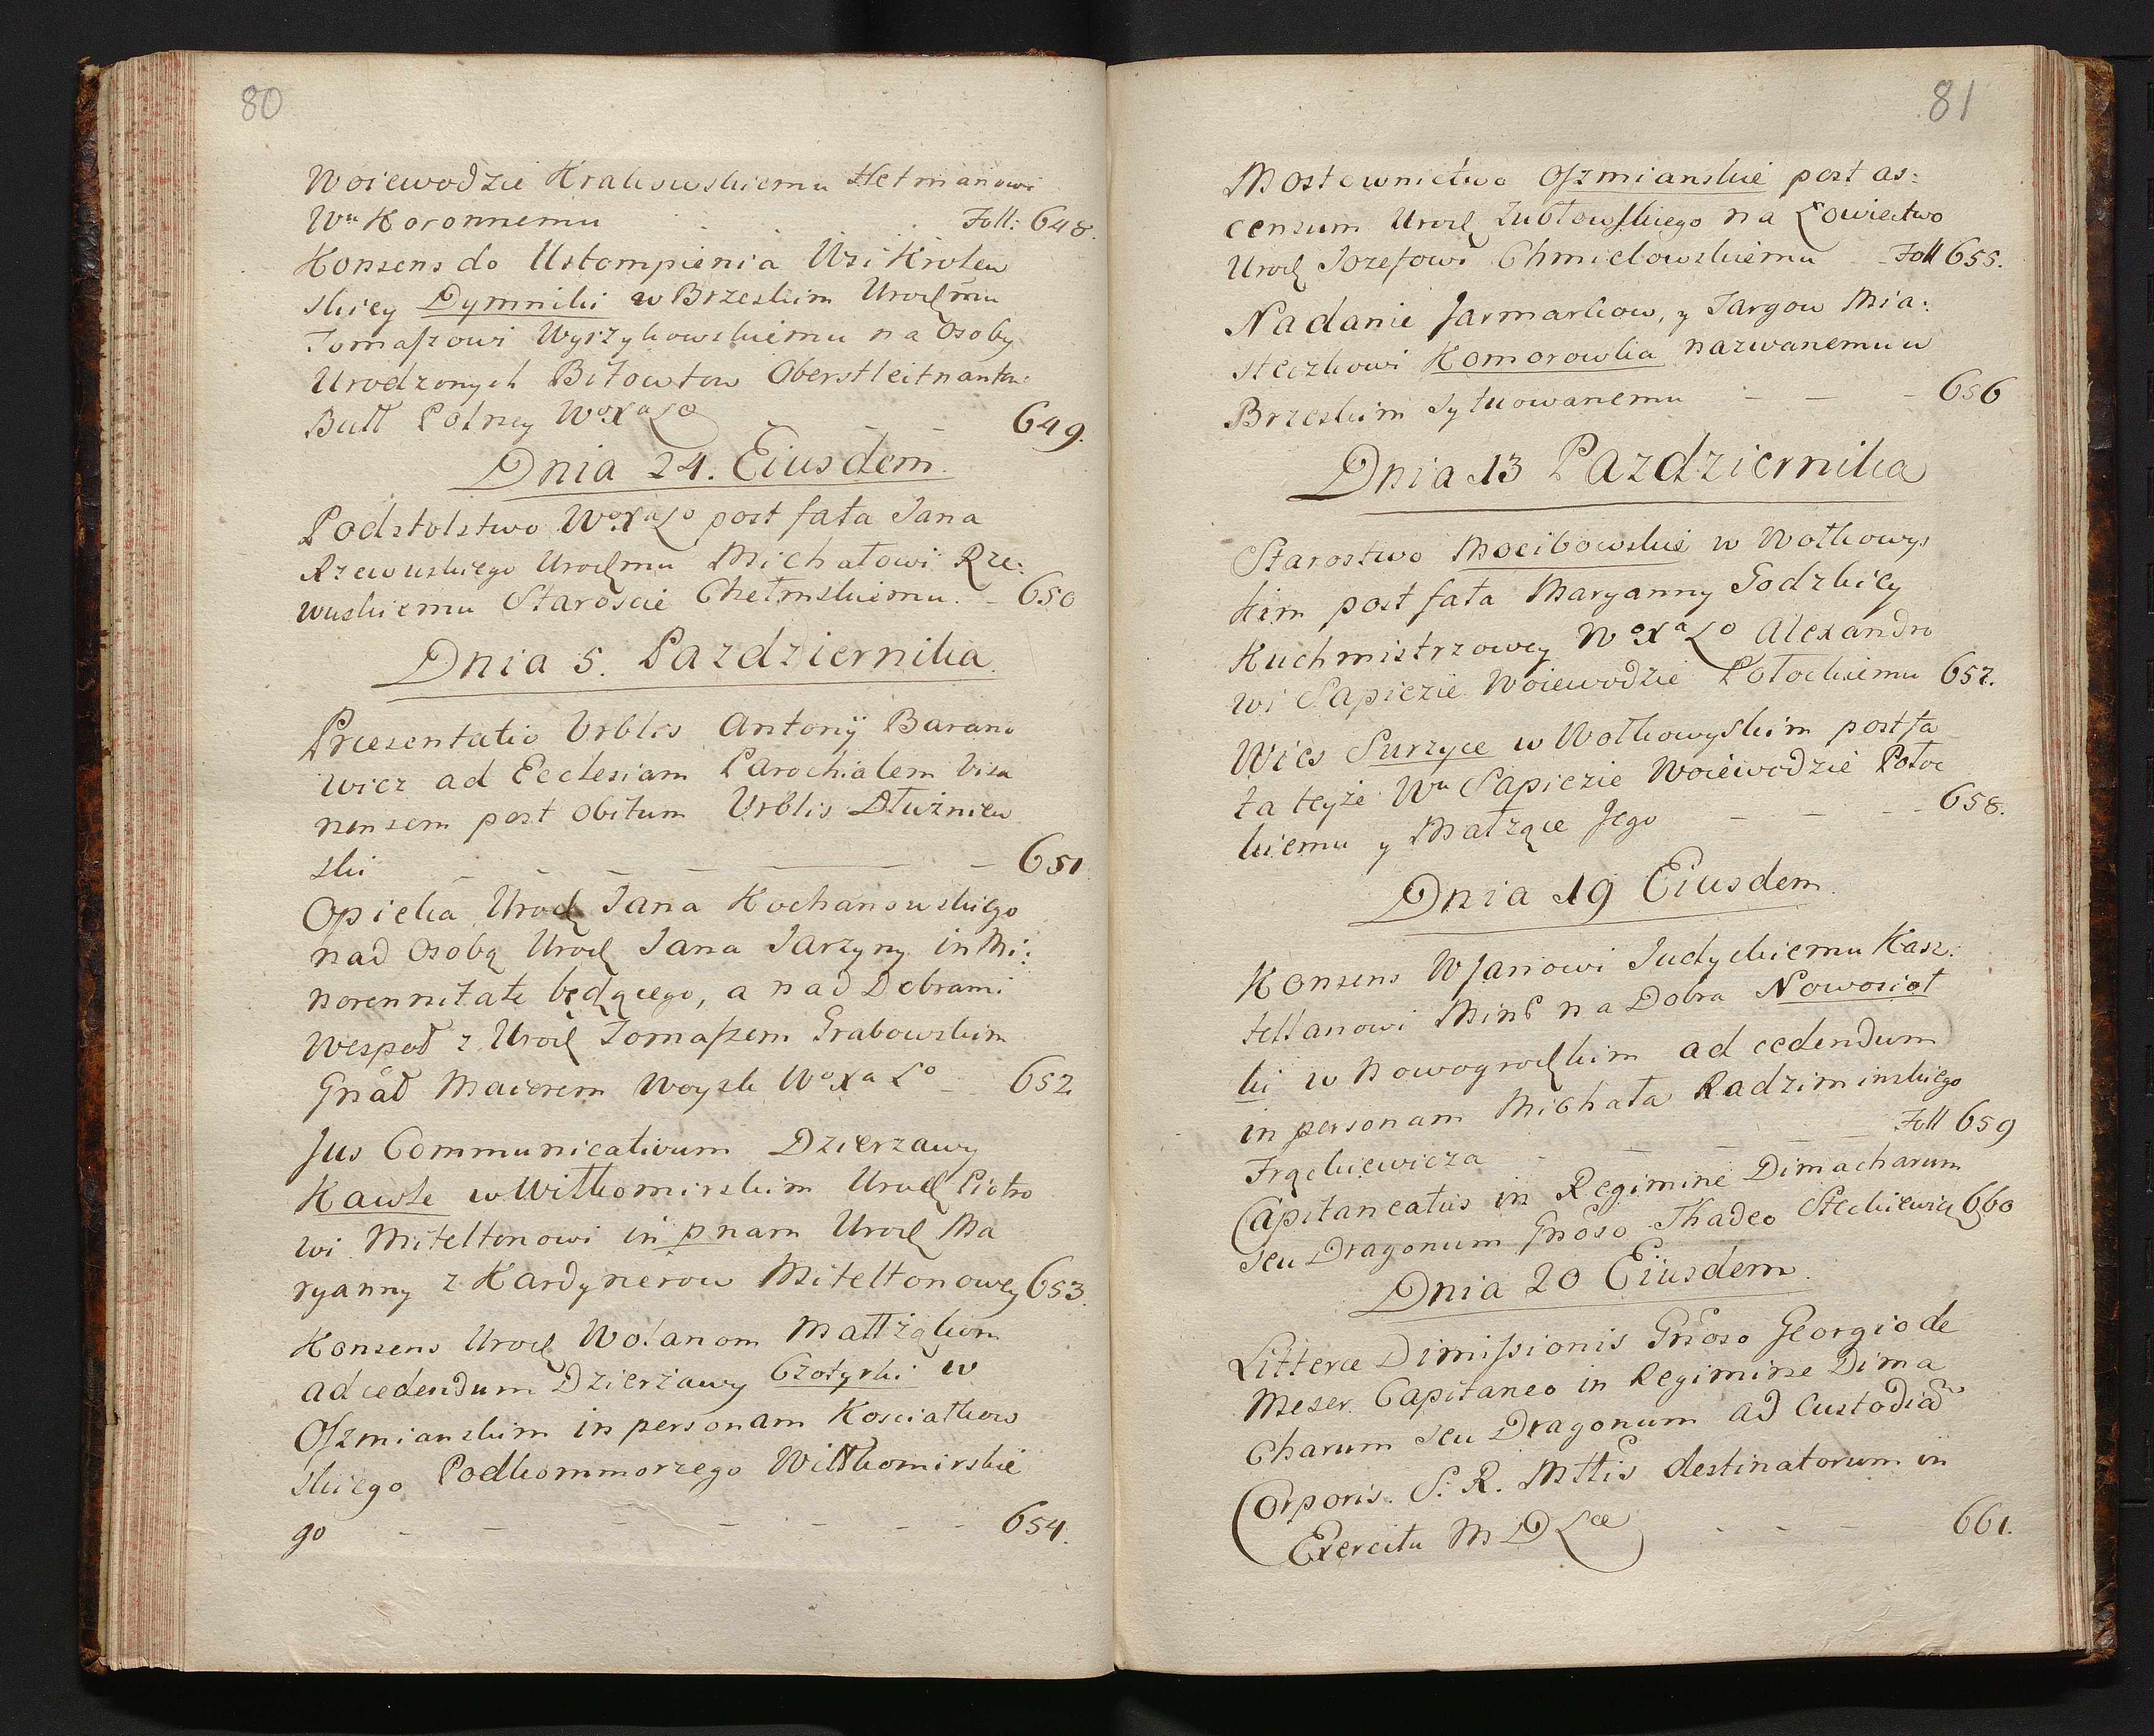 80
Woiewodzie Krakowskiemu Hetmanowi
Wu Koronnemu Foll: 648.
Konsens do Ustompienia Wsi Krolew
skiey Dymniki w Brzeskim Urodzmu
Tomaszowi Wyrzykowskiemu na Osoby
Urodzonych Bitowtow Oberstleitnantow
Bułł Polney WoXaLo - - 649.
Dnia 24. Eiusdem.
Podstolstwo WoXaLo post fata Jana
Rzewuskiego Urodzmu Michałowi Rze:
wuskiemu Staroscie Chełmskiemu. - 650
Dnia 5. Pazdziernika.
Præsentatio Vrblis Antonij Barano
wicz ad Ecclesiam Parochialem Visu
nensem post obitum Vrblis Dłużniew
ski - - - - - - 651
Opieka Urodz Jana Kochanowskiego
nad Osobą Urodz Jana Jarzyny in Mi:
norennitate będącego, a nad Dobrami
wespoł z Urodz Tomaszem Grabowskim
Gnał Maiorem Woysk WoXaLo - 652
Jus Communicativum Dzierzawy
Kawle w Wiłkomirskim Urodz Piotro
wi Miteltonowi in pnam Urodz Ma
ryanny z Kardynerow Miteltonowey 653.
Konsens Urodz Wolanom Małłżąkom
ad cedendum Dzierżawy Czotyrki w
Oszmianskim in personam Kosciałkow
skiego Podkommorzego Wiłłkomirskie
go - - - - - - - 654.
81
Mostownictwo Oszmianskie post as:
censum Urodz Zubłowskiego na Łowiectwo
Urodz Jozefowi Chmielowskiemu - Foll 655.
Nadanie Jarmarkow, y Targow Mia:
steczkowi Komorowka nazwanemu w
Brzeskim Sytuowanemu - - - 656
Dnia 13 Pazdziernika
Starostwo Mscibowskie w Wołkowys
kim post fata Maryanny Godzkiey
Kuchmistrzowey WoXaLo Alexandro
wi Sapiezie Woiewodzie Połockiemu 657.
Wies Surzyce w Wołkowyskim post fa
ta teyże Wu Sapiezie Woiewodzie Połoc
kiemu y Małżące Jego - - - 658.
Dnia 19 Eiusdem.
Konsens W Janowi Judyckiemu Kasz:
tellanowi Minś na Dobra Nowosioł
ki w Nowogrodzkim ad cedendum
in personam Michała Radziminskiego
Frąckiewicza - - - - Foll 659
Capitaneatus in Regimine Dimacharum
seu Dragonum Gnoso Thadeo Steckiewicz 660
Dnia 20 Eiusdem.
Litteræ Dimissionis Gnoso Georgio de
Meser Capitaneo in Regimine Dima
charum seu Dragonum ad Custodiã
Corporis S: R. Mttis destinatorum in
Exercitu M D Lœ - - - 661.